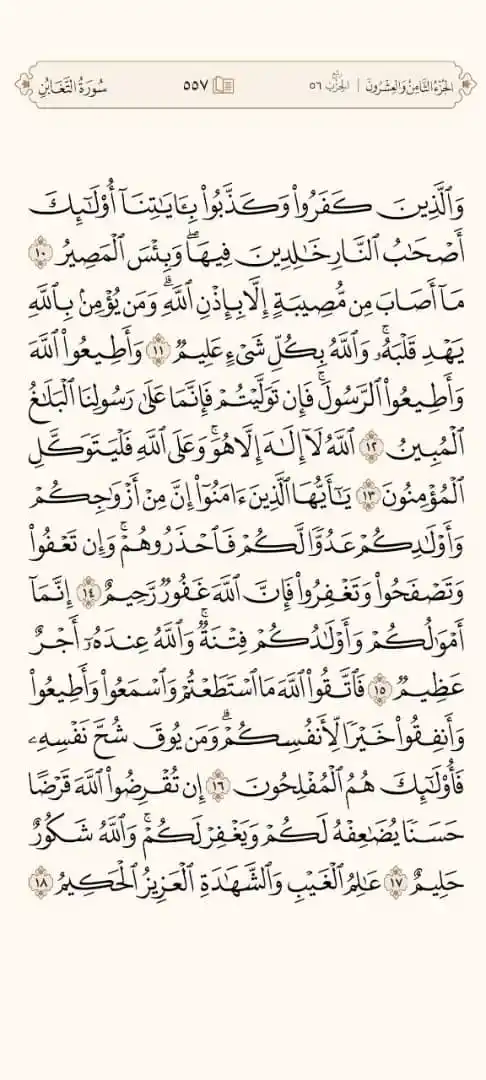 الجُزْءُ الثَّامِنُ وَالعِشْرُونَ | رُبع الحِزْبُ ٥٦ ٥٥٧ سُورَةُ التَّغَابُنِ
وَٱلَّذِينَ كَفَرُوا۟ وَكَذَّبُوا۟ بِـَٔايَـٰتِنَآ أُو۟لَـٰٓئِكَ
أَصْحَـٰبُ ٱلنَّارِ خَـٰلِدِينَ فِيهَا ۖ وَبِئْسَ ٱلْمَصِيرُ ١٠
مَآ أَصَابَ مِن مُّصِيبَةٍ إِلَّا بِإِذْنِ ٱللَّهِ ۗ وَمَن يُؤْمِنۢ بِٱللَّهِ
يَهْدِ قَلْبَهُۥ ۚ وَٱللَّهُ بِكُلِّ شَىْءٍ عَلِيمٌ ١١ وَأَطِيعُوا۟ ٱللَّهَ
وَأَطِيعُوا۟ ٱلرَّسُولَ ۚ فَإِن تَوَلَّيْتُمْ فَإِنَّمَا عَلَىٰ رَسُولِنَا ٱلْبَلَـٰغُ
ٱلْمُبِينُ ١٢ ٱللَّهُ لَآ إِلَـٰهَ إِلَّا هُوَ ۚ وَعَلَى ٱللَّهِ فَلْيَتَوَكَّلِ
ٱلْمُؤْمِنُونَ ١٣ يَـٰٓأَيُّهَا ٱلَّذِينَ ءَامَنُوٓا۟ إِنَّ مِنْ أَزْوَٰجِكُمْ
وَأَوْلَـٰدِكُمْ عَدُوًّا لَّكُمْ فَٱحْذَرُوهُمْ ۚ وَإِن تَعْفُوا۟
وَتَصْفَحُوا۟ وَتَغْفِرُوا۟ فَإِنَّ ٱللَّهَ غَفُورٌ رَّحِيمٌ ١٤ إِنَّمَآ
أَمْوَٰلُكُمْ وَأَوْلَـٰدُكُمْ فِتْنَةٌ ۚ وَٱللَّهُ عِندَهُۥٓ أَجْرٌ
عَظِيمٌ ١٥ فَٱتَّقُوا۟ ٱللَّهَ مَا ٱسْتَطَعْتُمْ وَٱسْمَعُوا۟ وَأَطِيعُوا۟
وَأَنفِقُوا۟ خَيْرًا لِّأَنفُسِكُمْ ۗ وَمَن يُوقَ شُحَّ نَفْسِهِۦ
فَأُو۟لَـٰٓئِكَ هُمُ ٱلْمُفْلِحُونَ ١٦ إِن تُقْرِضُوا۟ ٱللَّهَ قَرْضًا
حَسَنًا يُضَـٰعِفْهُ لَكُمْ وَيَغْفِرْ لَكُمْ ۚ وَٱللَّهُ شَكُورٌ
حَلِيمٌ ١٧ عَـٰلِمُ ٱلْغَيْبِ وَٱلشَّهَـٰدَةِ ٱلْعَزِيزُ ٱلْحَكِيمُ ١٨